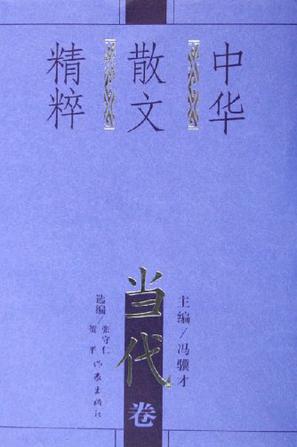 中华
散文
精粹
当代
卷
主编/冯骥才
选编/张守仁
贺平
作家出版社